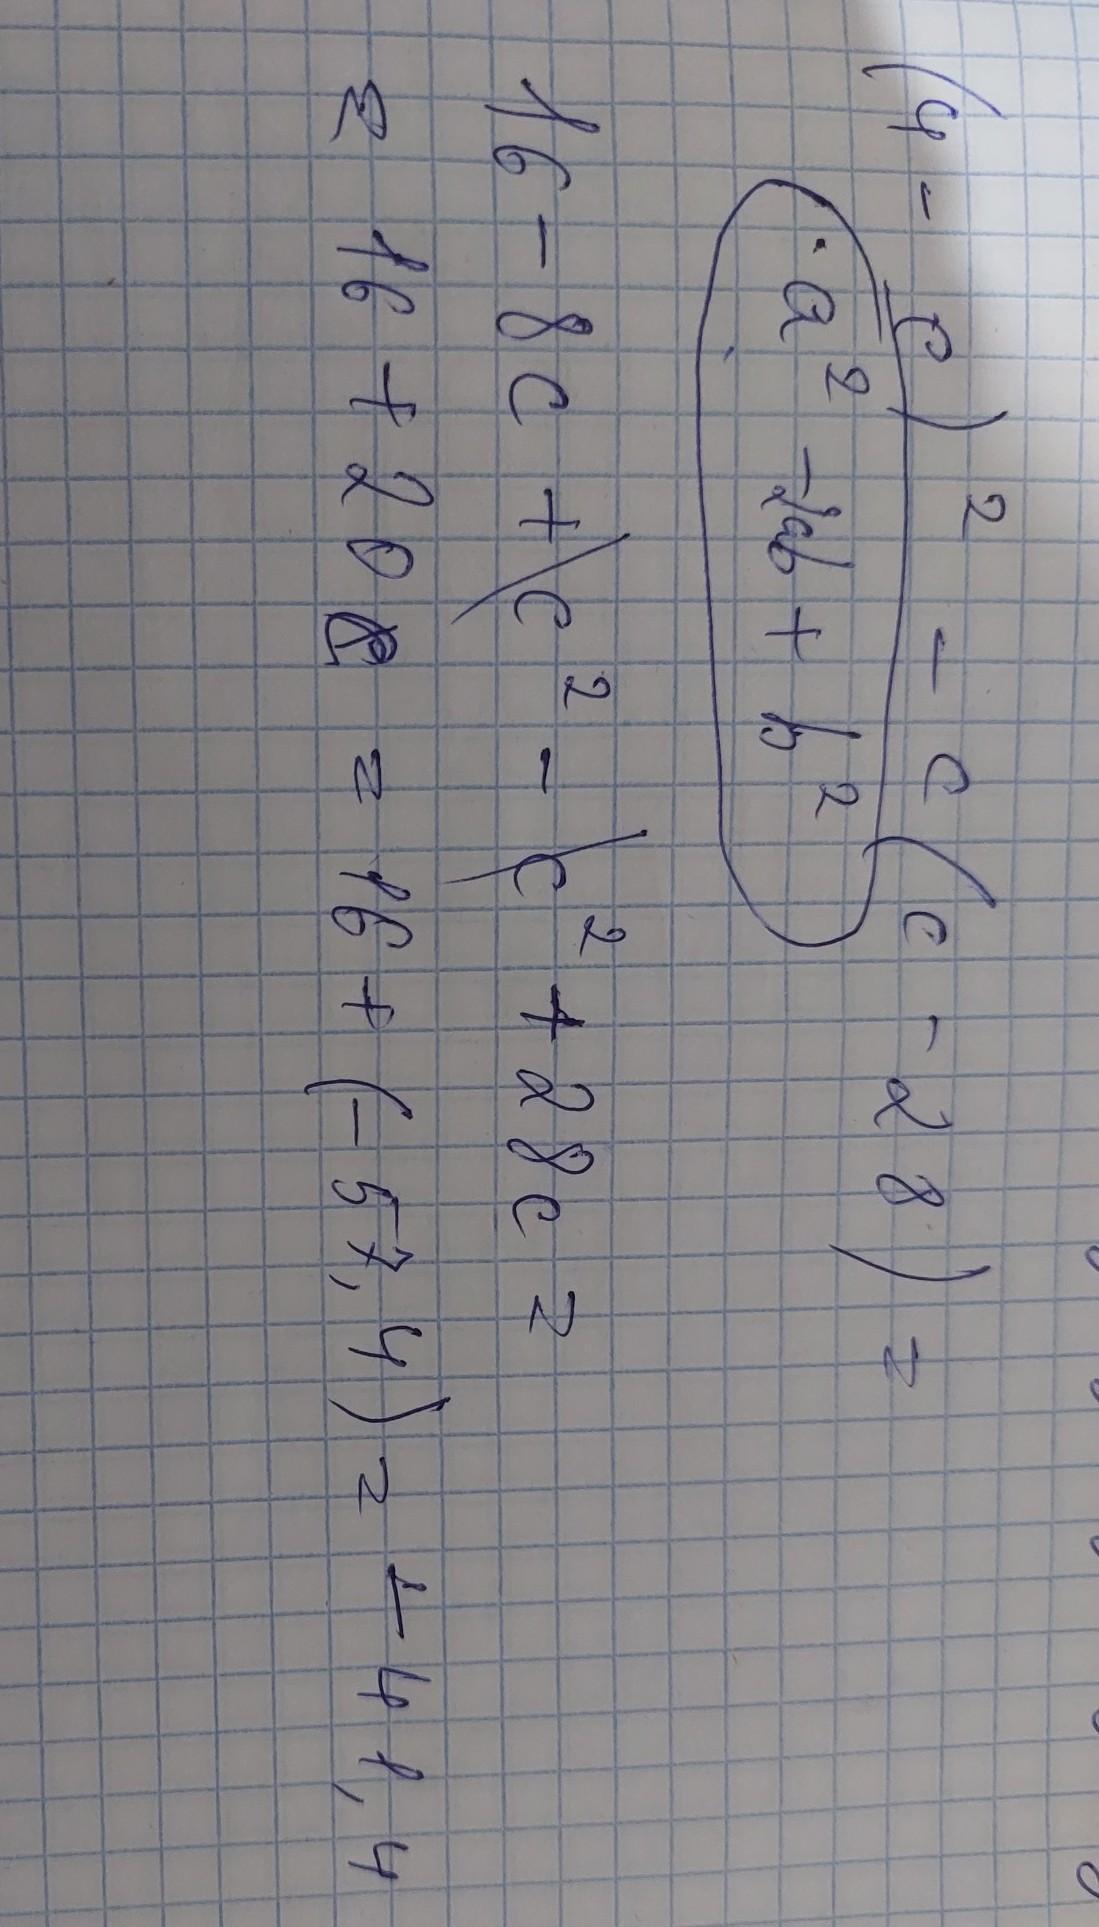 (4 - c)² - c(c - 28) =
a² - 2ab + b²
16 - 8c + c² - c² + 28c =
= 16 + 20c = 16 + (-57,4) = -41,4